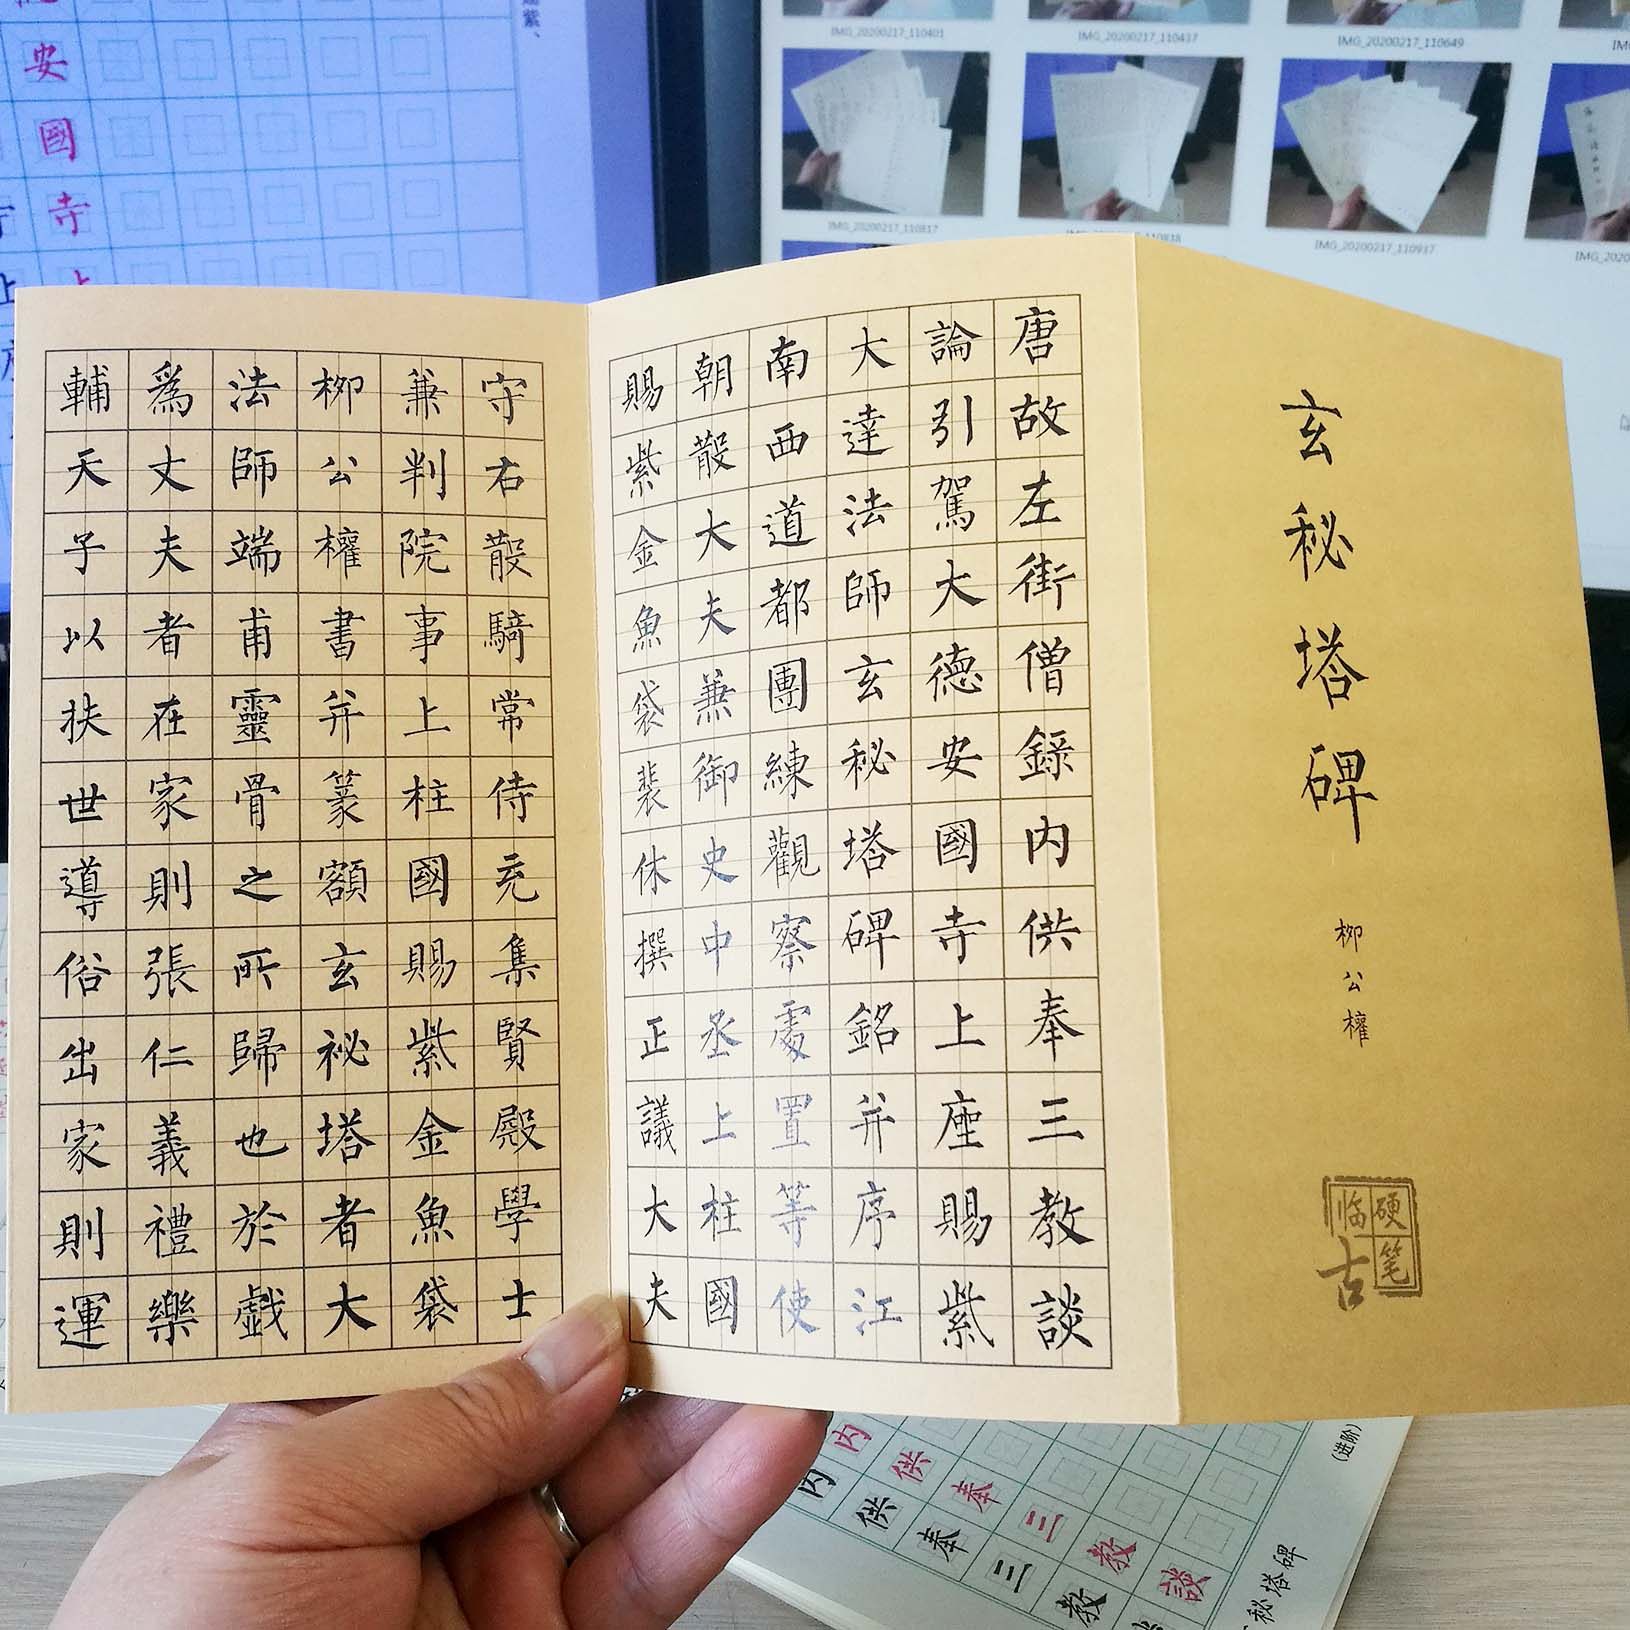 玄秘塔碑
柳公權
硬笔
临古
唐故左街僧錄内供奉三教談
論引駕大德安國寺上座賜紫
大達法師玄秘塔碑銘并序江
南西道都團練觀察處置等使
朝散大夫兼御史中丞上柱國
賜紫金魚袋裴休撰正議大夫
守右散騎常侍充集賢殿學士
兼判院事上柱國賜紫金魚袋
柳公權書并篆額玄祕塔者大
法師端甫靈骨之所歸也於戲
為丈夫者在家則張仁義禮樂
輔天子以扶世導俗出家則運
安國寺上
IMG_20200217_110401
IMG_20200217_110437
IMG_20200217_110649
IMG_20200217_110817
IMG_20200217_110937
内供奉三教談
内供奉三教
(进阶)
秘塔碑